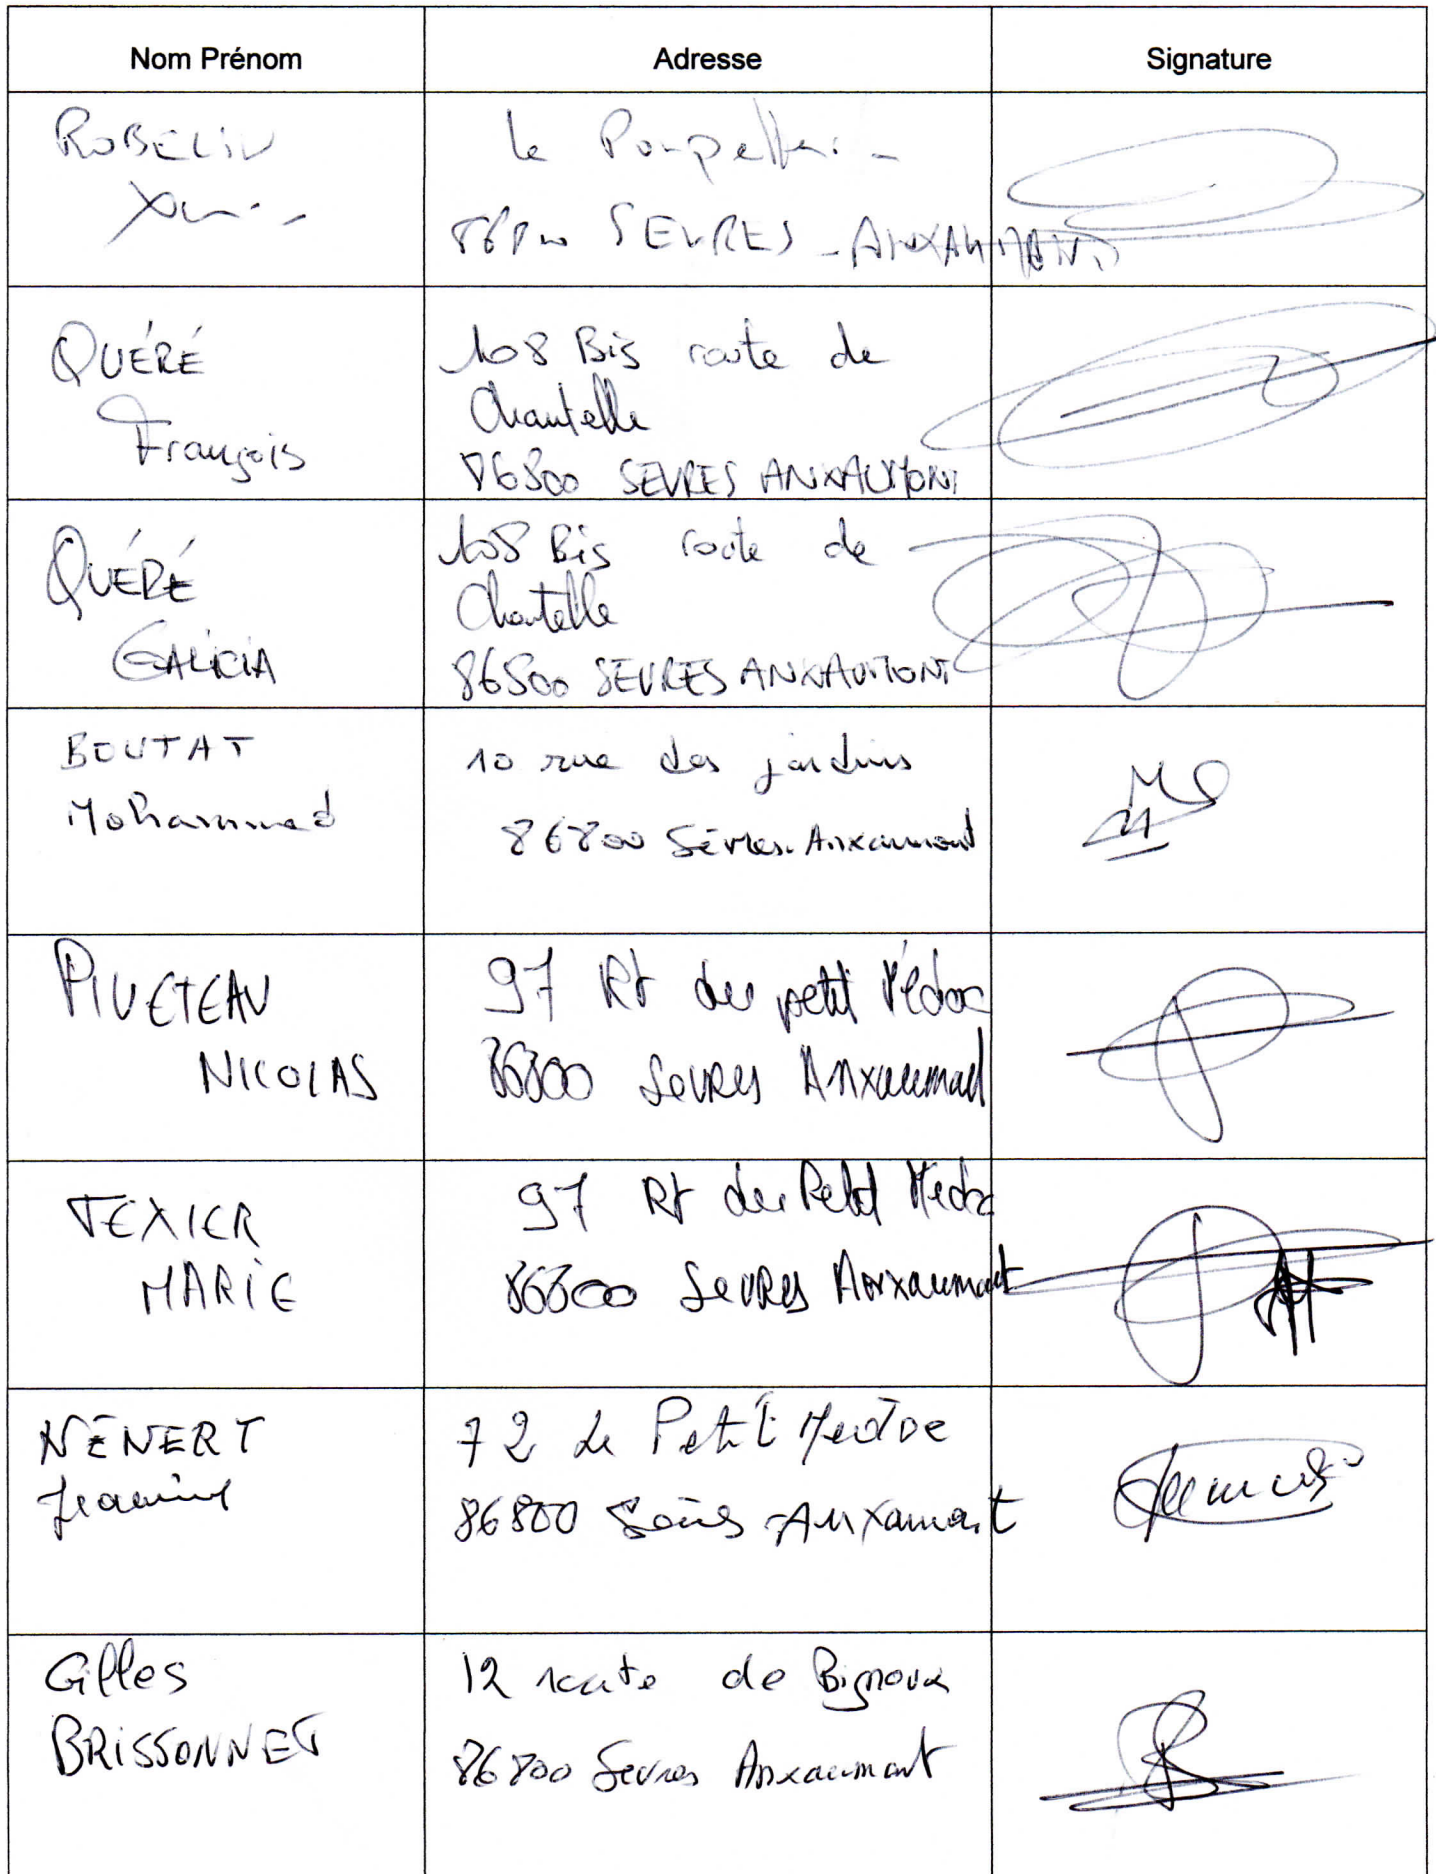 Nom Prénom
Adresse
Signature
ROBELIN
Le
SEVRES-ANXAUMONT
QUÉRÉ
François
108 Bis route de
Chantelle
86800 SEVRES ANXAUMONT
QUÉRÉ
GALICIA
108 Bis route de
Chantelle
86800 SEVRES ANXAUMONT
BOUTAT
Mohammed
10 rue des jardins
86800 Sèvres-Anxaumont
PIVETEAU
NICOLAS
97 Rt du petit Médoc
86800 Sevres Anxaumont
TEXIER
MARIE
97 Rt du Petit Médoc
86800 Sevres Anxaumont
NÉNERT
Jeanine
72 Le Petit Medoc
86800 Sèvres-Anxaumont
Gilles
BRISSONNET
12 route de Bignoux
86800 Sevres Anxaumont